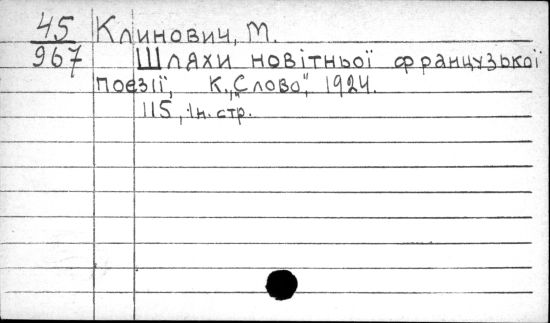 45 Клинович, М.
967 Шляхи новітньої французької
поезії, К., „Слово", 1924.
115, 1н. стр.